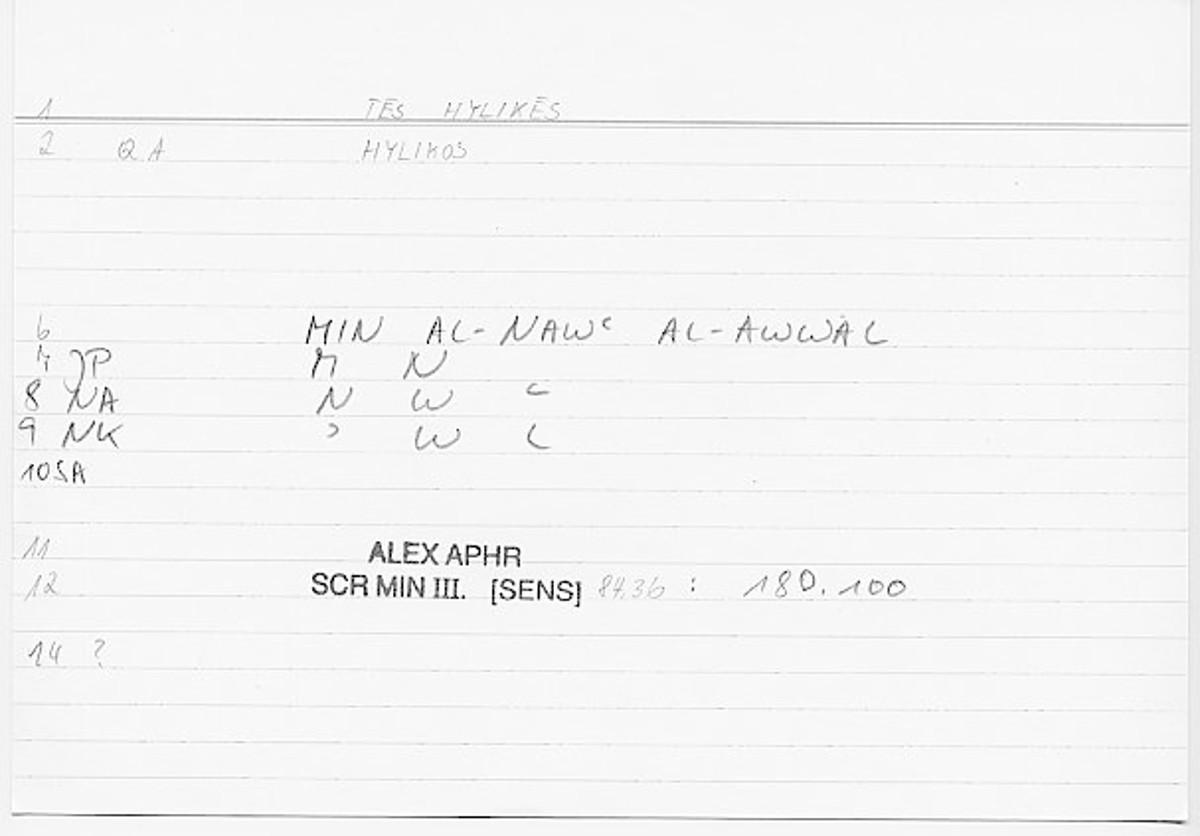 1 TĒS HYLIKĒS
2 QA HYLIKOS
6 MIN AL-NAWʿ AL-AWWAL
7 JP M N
8 NA N W ʿ
9 NK ʾ W L
10 SA
11 ALEX APHR
12 SCR MIN III. [SENS] 84.36 : 180.100
14 ?